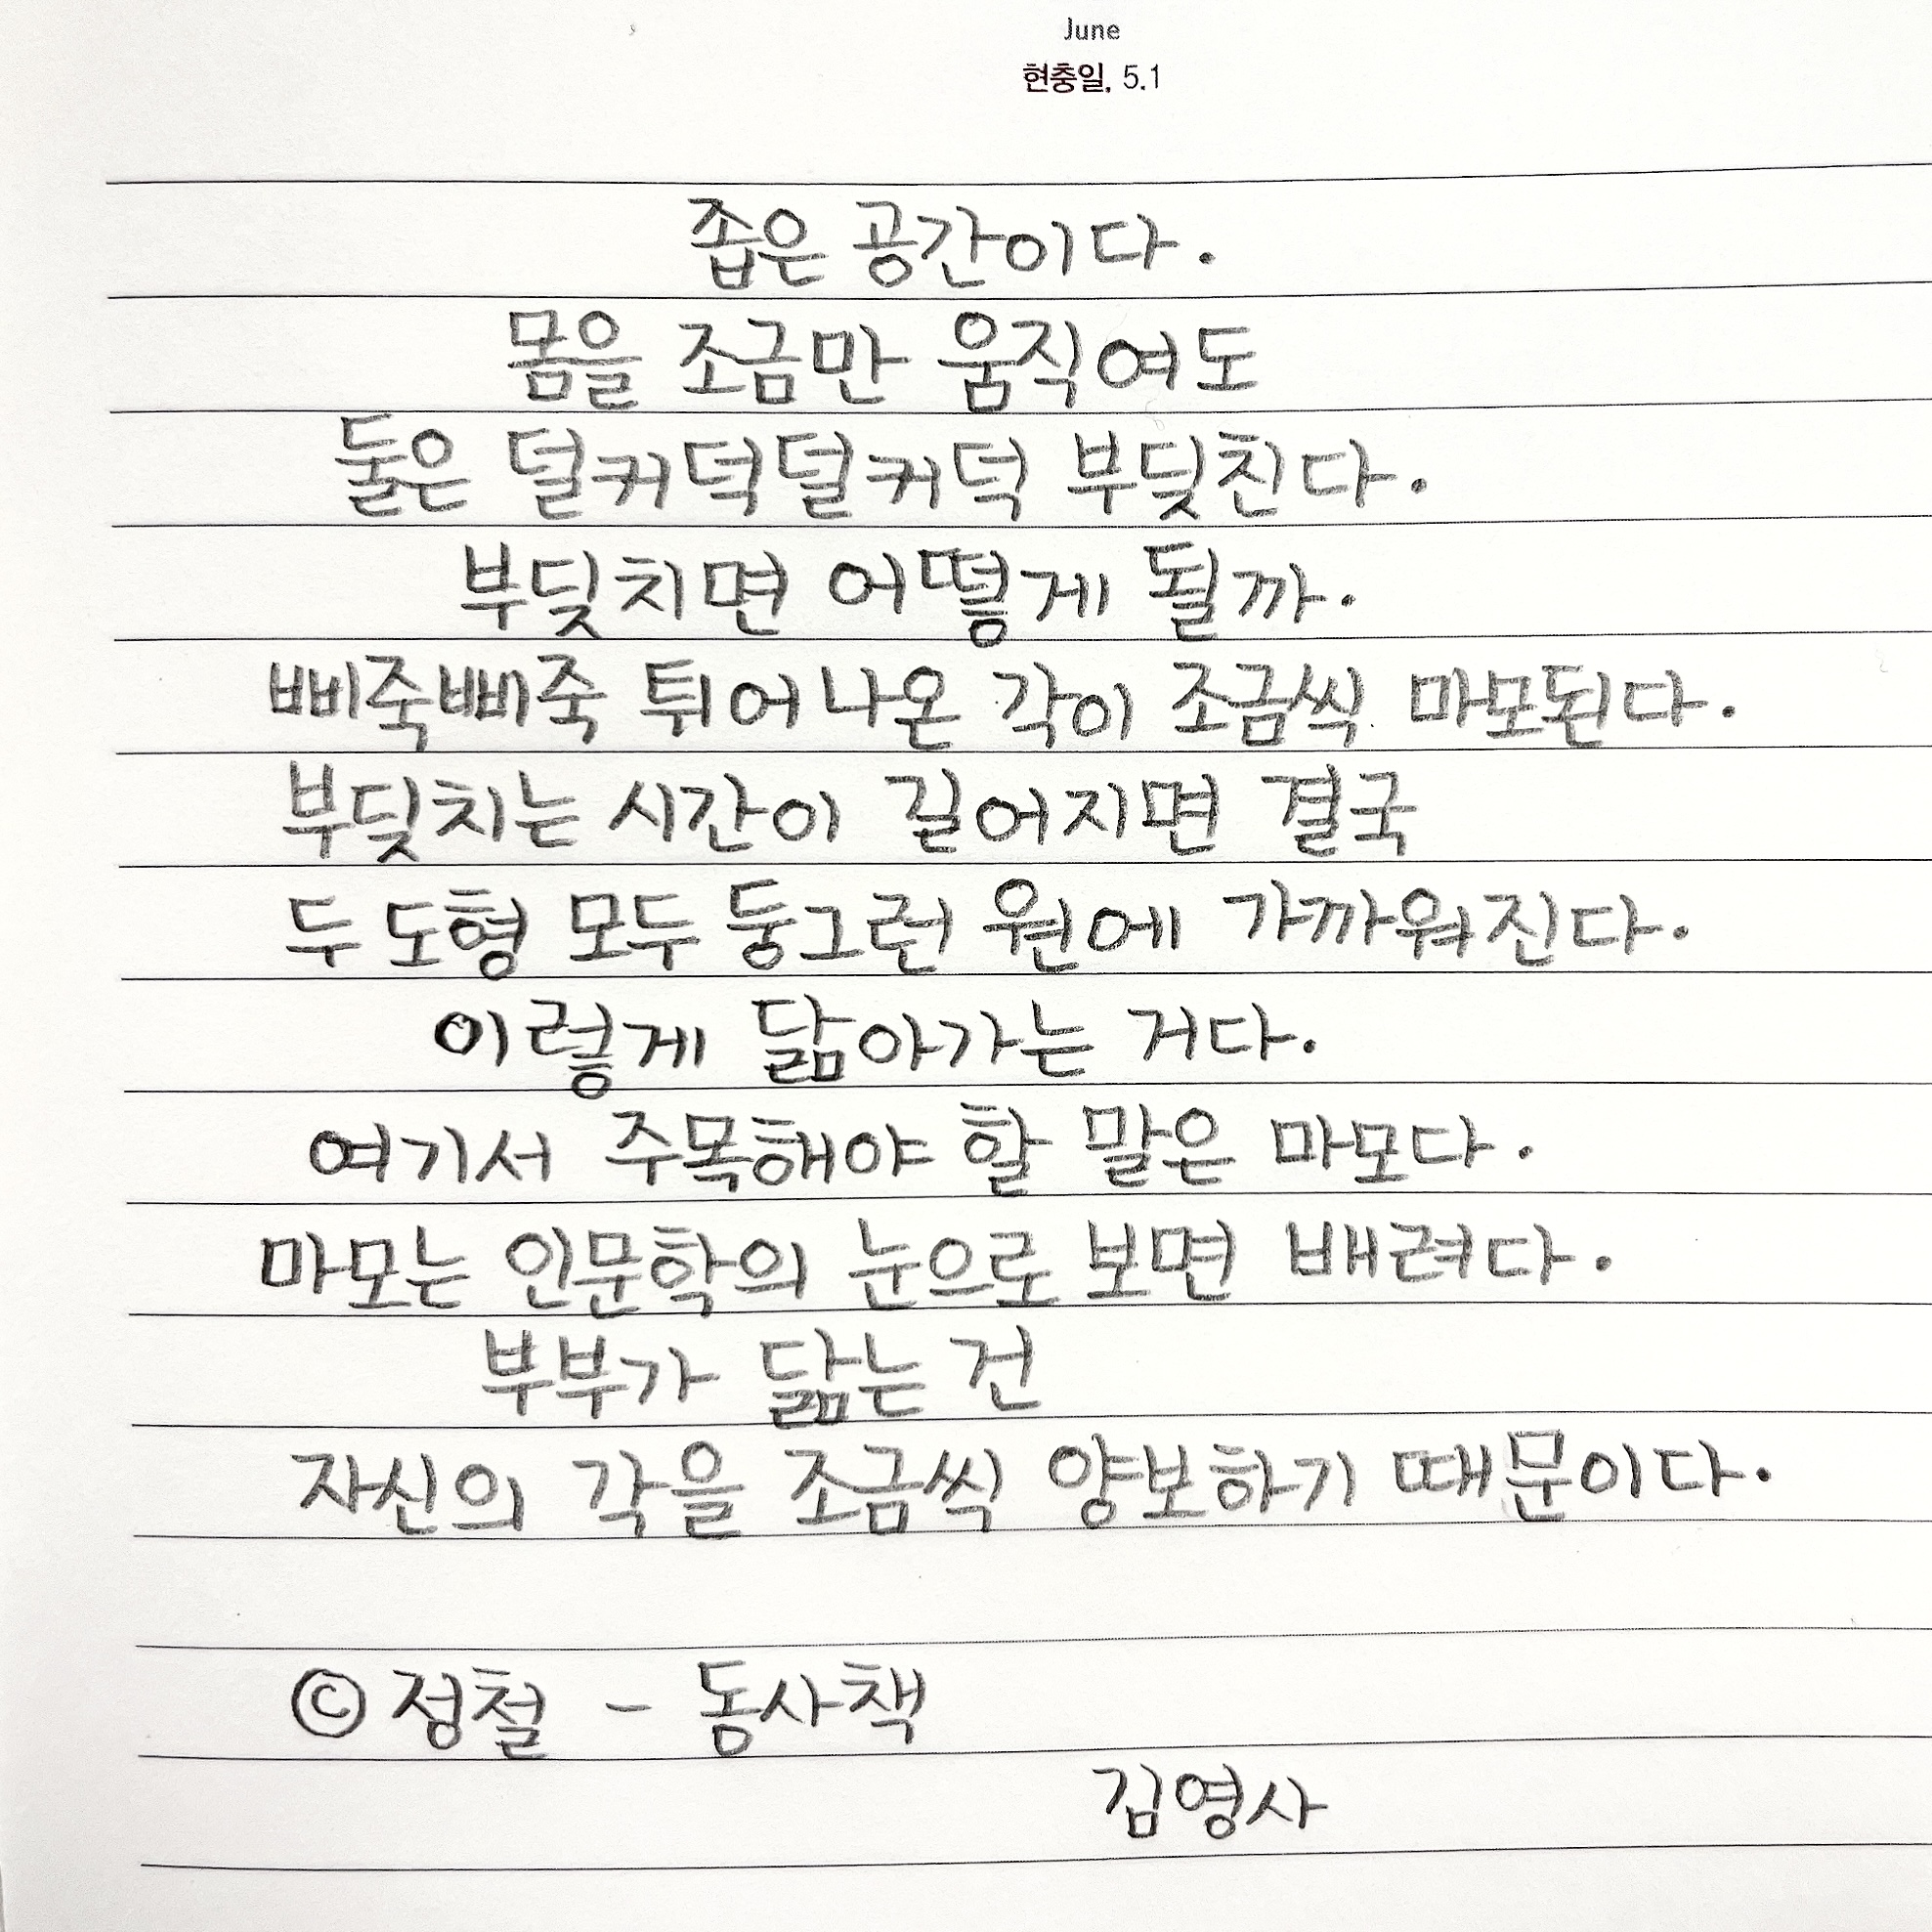 June
현충일, 5.1
좁은 공간이다.
몸을 조금만 움직여도
둘은 덜커덕덜커덕 부딪친다.
부딪치면 어떻게 될까.
삐죽삐죽 튀어나온 각이 조금씩 마모된다.
부딪치는 시간이 길어지면 결국
두 도형 모두 둥그런 원에 가까워진다.
이렇게 닮아가는 거다.
여기서 주목해야 할 말은 마모다.
마모는 인문학의 눈으로 보면 배려다.
부부가 닮는 건
자신의 각을 조금씩 양보하기 때문이다.
© 정철 - 동사책
김영사